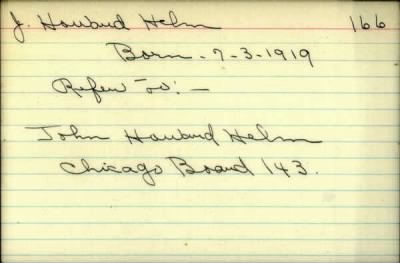 J. Howard Helm 166
Born - 7-3-1919
Refer to: -
John Howard Helm
Chicago Board 143.